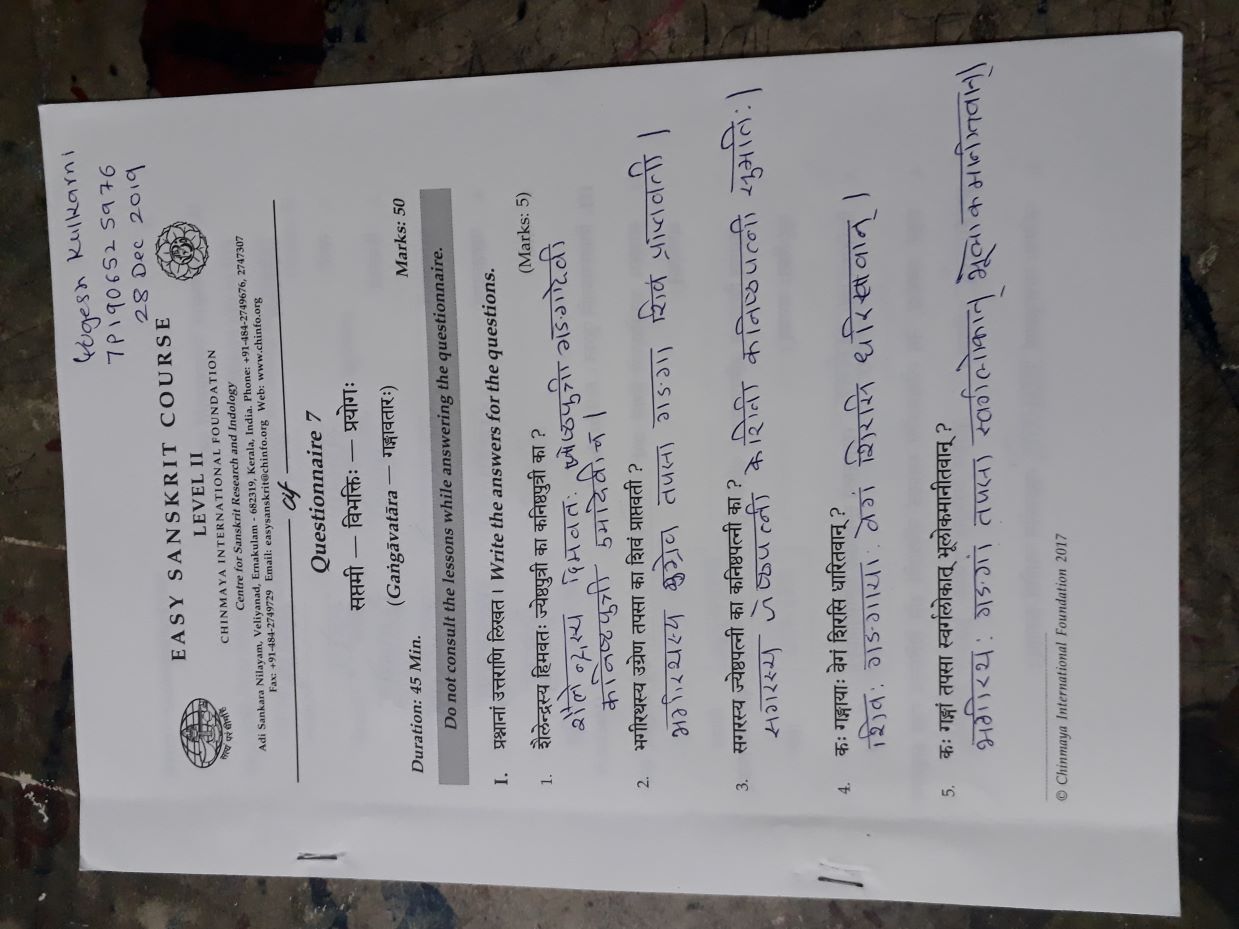 Yogesh Kulkarni
7P1906525976
28 Dec 2019
EASY SANSKRIT COURSE
LEVEL II
CHINMAYA INTERNATIONAL FOUNDATION
Centre for Sanskrit Research and Indology
Adi Sankara Nilayam, Veliyanad, Ernakulam - 682319, Kerala, India. Phone: +91-484-2749676, 2747307
Fax: +91-484-2749729 Email: easysanskrit@chinfo.org Web: www.chinfo.org
Questionnaire 7
सप्तमी — विभक्तिः — प्रयोगः
(Gaṅgāvatāra — गङ्गावतारः)
Duration: 45 Min. Marks: 50
Do not consult the lessons while answering the questionnaire.
I. प्रश्नानां उत्तराणि लिखत । Write the answers for the questions.
(Marks: 5)
1. शैलेन्द्रस्य हिमवतः ज्येष्ठपुत्री का कनिष्ठपुत्री का ?
शैलेन्द्रस्य हिमवतः ज्येष्ठपुत्री गङ्गादेवी
कनिष्ठपुत्री उमादेवी च ।
2. भगीरथस्य उग्रेण तपसा का शिवं प्राप्तवती ?
भगीरथस्य तपसा गङ्गा शिवं प्राप्तवती ।
3. सगरस्य ज्येष्ठपत्नी का कनिष्ठपत्नी का ?
सगरस्य जेष्ठपत्नी केशिनी कनिष्ठपत्नी सुमतिः ।
4. कः गङ्गायाः वेगं शिरसि धारितवान् ?
शिवः गङ्गायाः वेगं शिरसि धरितवान् ।
5. कः गङ्गां तपसा स्वर्गलोकात् भूलोकमानीतवान् ?
भगीरथः गङ्गां तपसा स्वर्गलोकात् भूलोकमानीतवान् ।
© Chinmaya International Foundation 2017